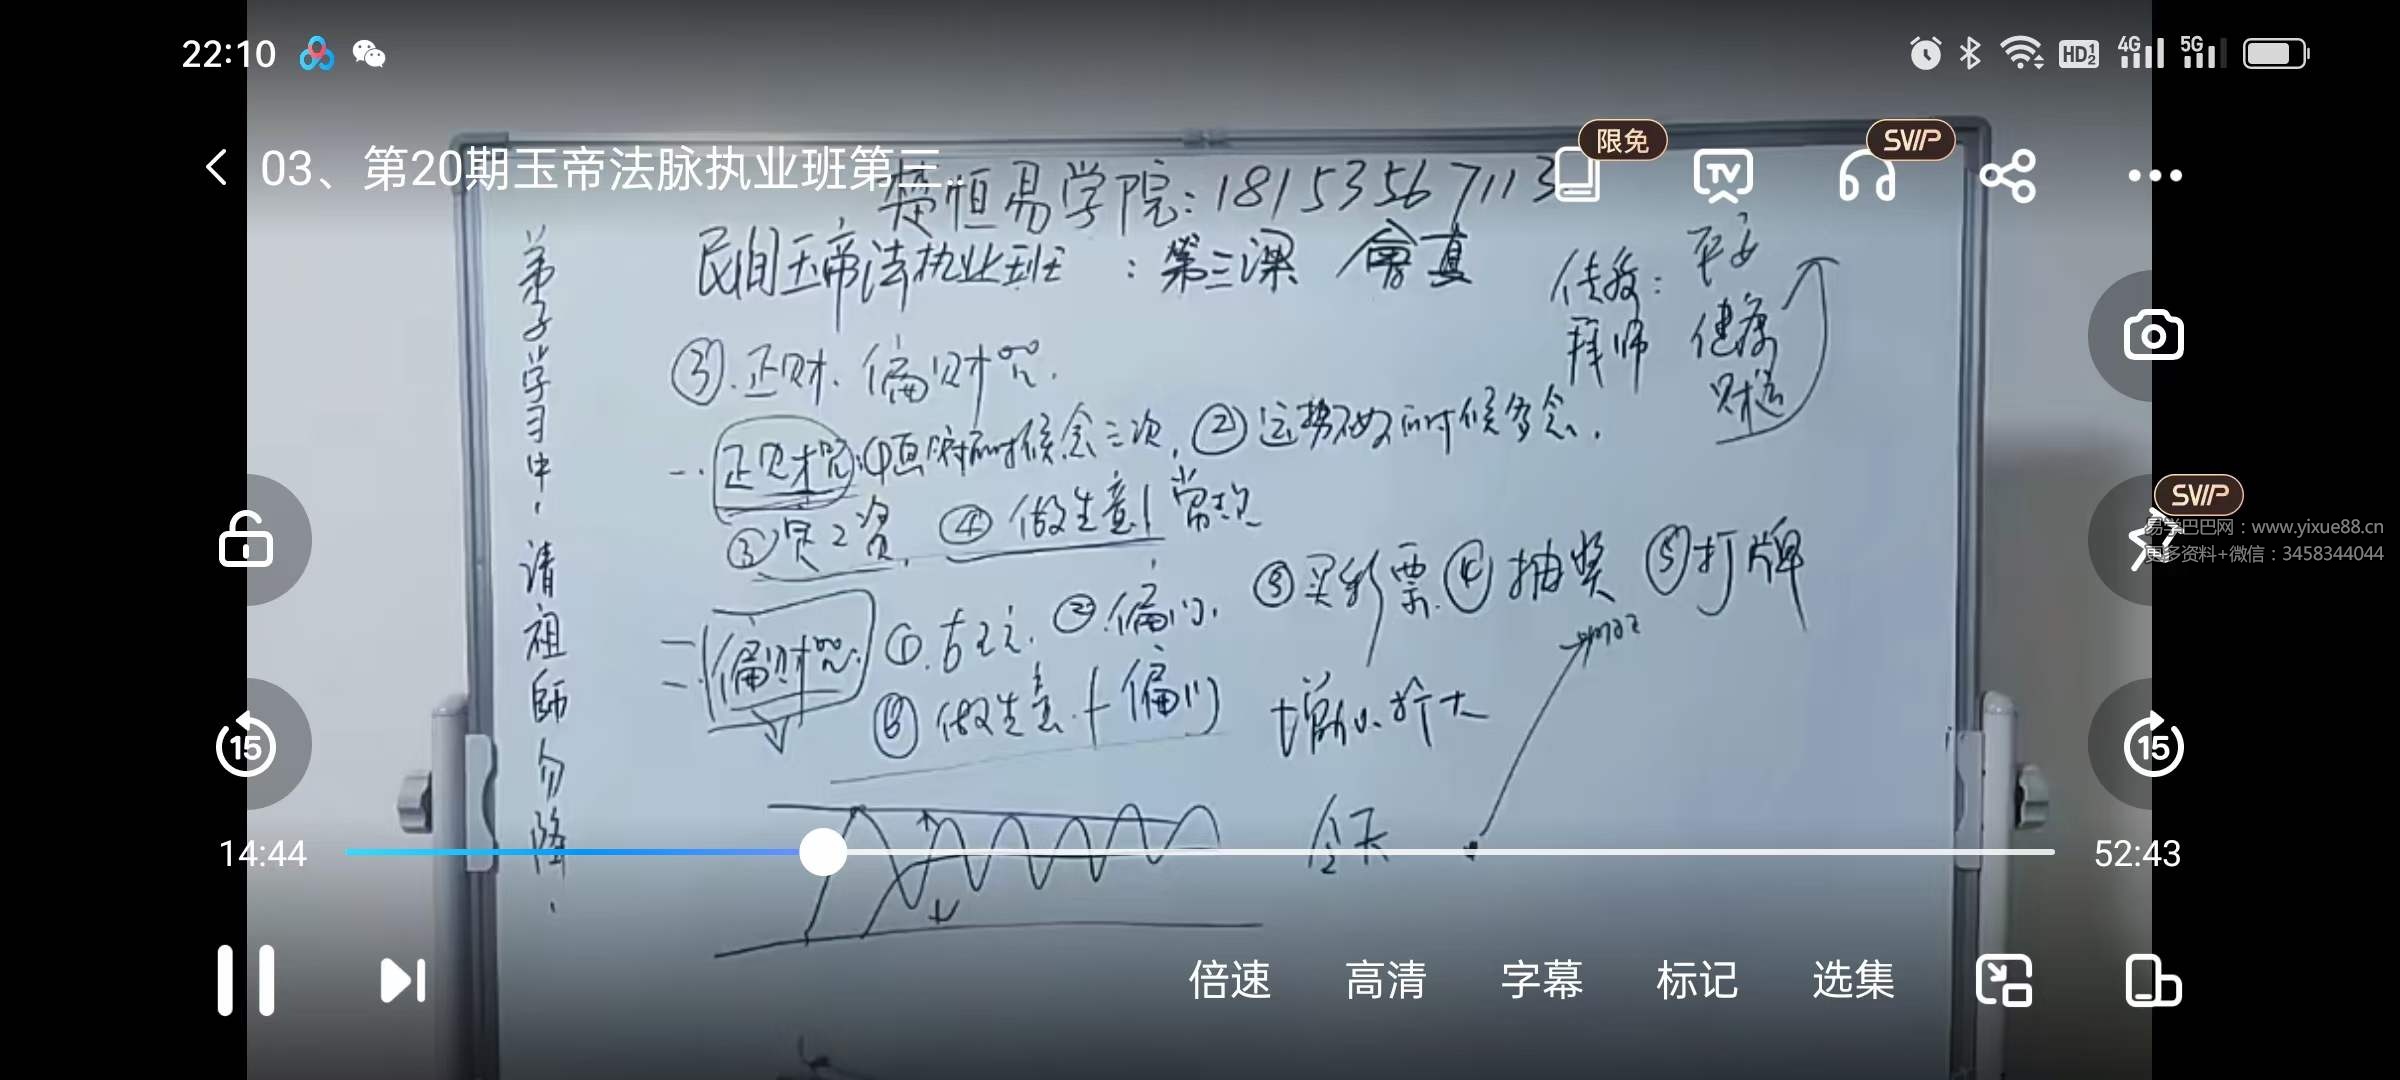 22:10
HD 1 2 4G 5G
限免
SVIP
03、第20期玉帝法脉执业班第三...
TV
楚恒易学院:18153567113
民间玉帝法执业班 : 第三课
传度: 平安
拜师 健康
财运
弟子学习中,请祖師勿降.
③.正财、偏财咒.
一.正财咒:①画符的时候念三次,②运势不好的时候多念.
④做生意
二 偏财咒: ②.偏门, ③买彩票.④抽奖 ⑤打牌
⑥做生意.+偏门 增加、扩大
今天
SVIP
易学巴巴网：www.yixue88.cn
更多资料+微信：3458344044
15
15
14:44
52:43
倍速 高清 字幕 标记 选集